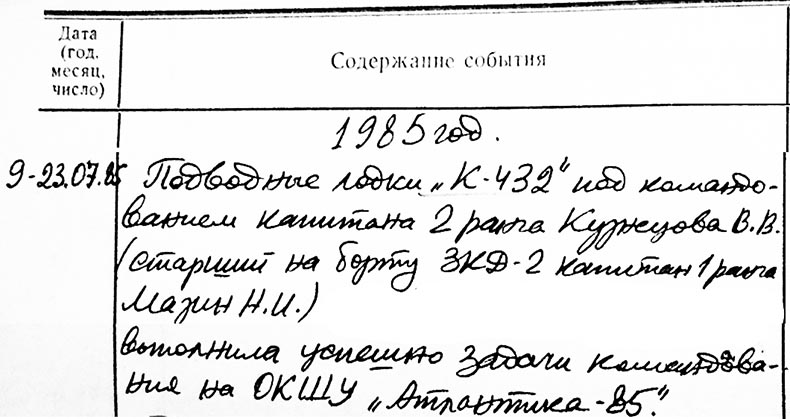 Дата
(год,
месяц,
число)
Содержание события
1985 год.
9-23.07.85 Подводные лодки „К-432" под командо-
ванием капитана 2 ранга Кузнецова В.В.
(старший на борту ЗКД-2 капитан 1 ранга
Мазин Н.И.)
выполнила успешно задачи командова-
ния на ОКШУ „Атлантика-85."